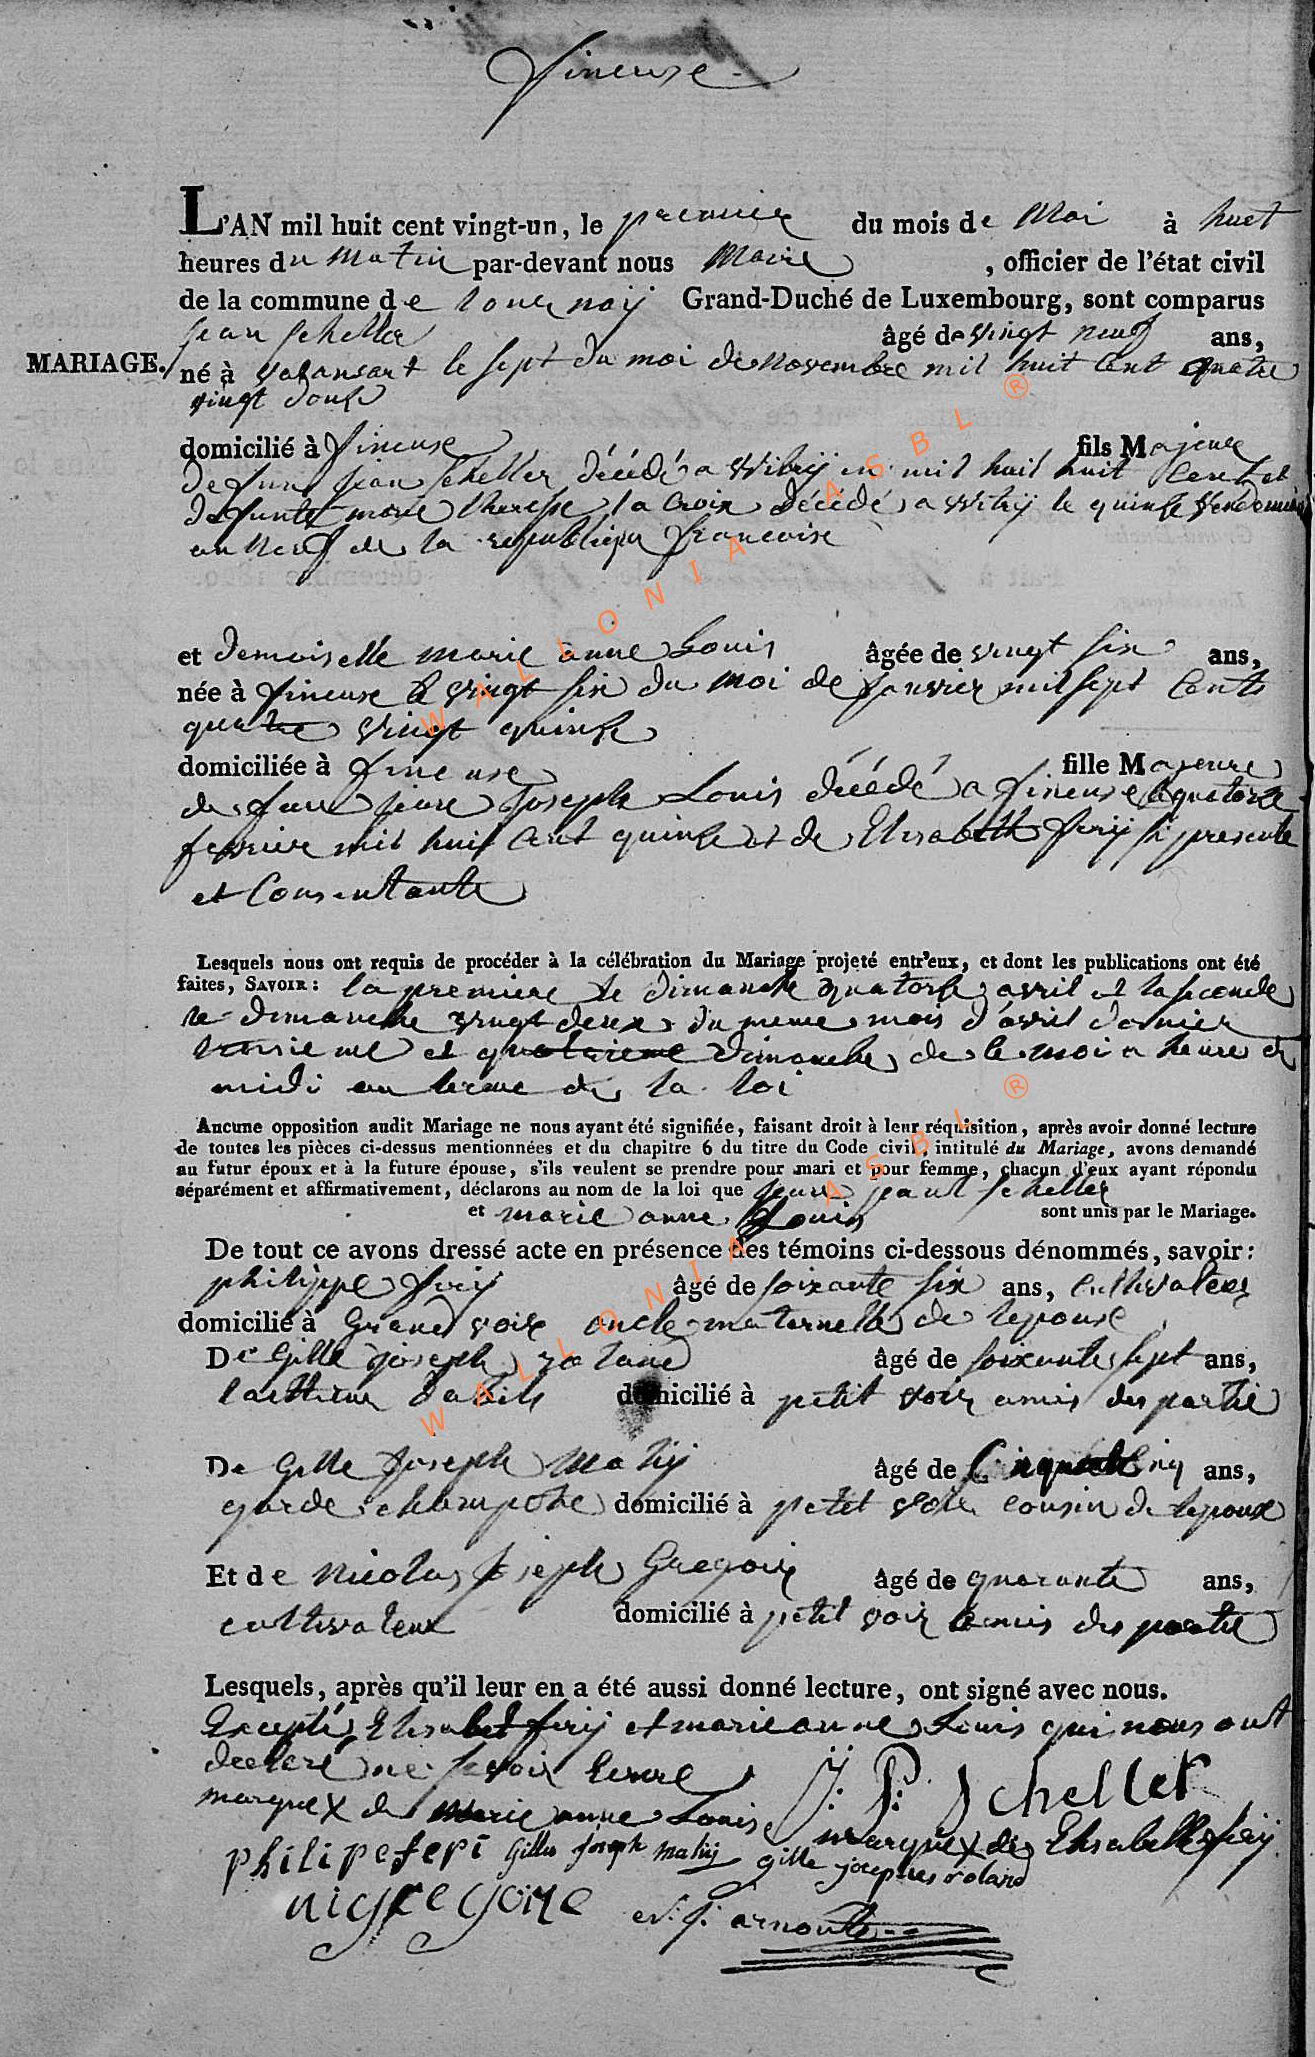 fineuse
L'AN mil huit cent vingt-un, le premier du mois de Mai à huit
heures du Matin par-devant nous Maire , officier de l'état civil
de la commune de tournaÿ Grand-Duché de Luxembourg, sont comparus
jean scheller âgé de vingt neuf ans,
MARIAGE.
né à volansart le sept du moi de novembre mil huit Cent quatre
vingt douse
domicilié à fineuse fils Majeur
defunt jean scheller décédé a vitrÿ en mil huit huit Cent et
defunte marie therese la croix décédé a vitrÿ le quinse vendemiai
an neuf de la republique francoise
et demoiselle marie anne Louis âgée de vingt six ans,
née à fineuse le vingt six du moi de janvier mil sept Cents
quatre vingt quinse
domiciliée à fineuse fille Majeure
de feu jean joseph Louis décédé a fineuse le quatorse
fevrier mil huit Cent quinse et de Elisabeth ferÿ si presente
et Consentante
Lesquels nous ont requis de procéder à la célébration du Mariage projeté entr'eux, et dont les publications ont été
faites, SAVOIR : la premiere le dimanche quatorse avril et la seconde
le dimanche vingt deux du meme mois d'avril dernier
troisieme et quatrieme dimanche de le moi a heure de
midi au terme de la loi
Aucune opposition audit Mariage ne nous ayant été signifiée, faisant droit à leur réquisition, après avoir donné lecture
de toutes les pièces ci-dessus mentionnées et du chapitre 6 du titre du Code civil, intitulé du Mariage, avons demandé
au futur époux et à la future épouse, s'ils veulent se prendre pour mari et pour femme, chacun d'eux ayant répondu
séparément et affirmativement, déclarons au nom de la loi que jean paul scheller
et marie anne Louis sont unis par le Mariage.
De tout ce avons dressé acte en présence des témoins ci-dessous dénommés, savoir :
philippe ferÿ âgé de soixante six ans, Cultivateur
domicilié à Grand voir oncle maternelle de lepouse
De Gille joseph roland âgé de soixante sept ans,
domicilié à petit voir amis des partie
De Gille joseph Mahÿ âgé de Cinquante Cinq ans,
garde champetre domicilié à petit voir cousin de lepoux
Et de nicolas joseph Gregoir âgé de quarante ans,
cultivateur domicilié à petit voir amis des partie
Lesquels, après qu'il leur en a été aussi donné lecture, ont signé avec nous.
Excepté Elisabet ferÿ et marie anne Louis qui nous ont
declaré ne savoir Ecrire
J: P: Scheller
marque X de marie anne Louis
marque X de Elisabeth ferÿ
philipe feri Gilles joseph mahÿ gille josephes roland
n i gregoire
arnould
WALLONIA ASBL ®
WALLONIA ASBL ®